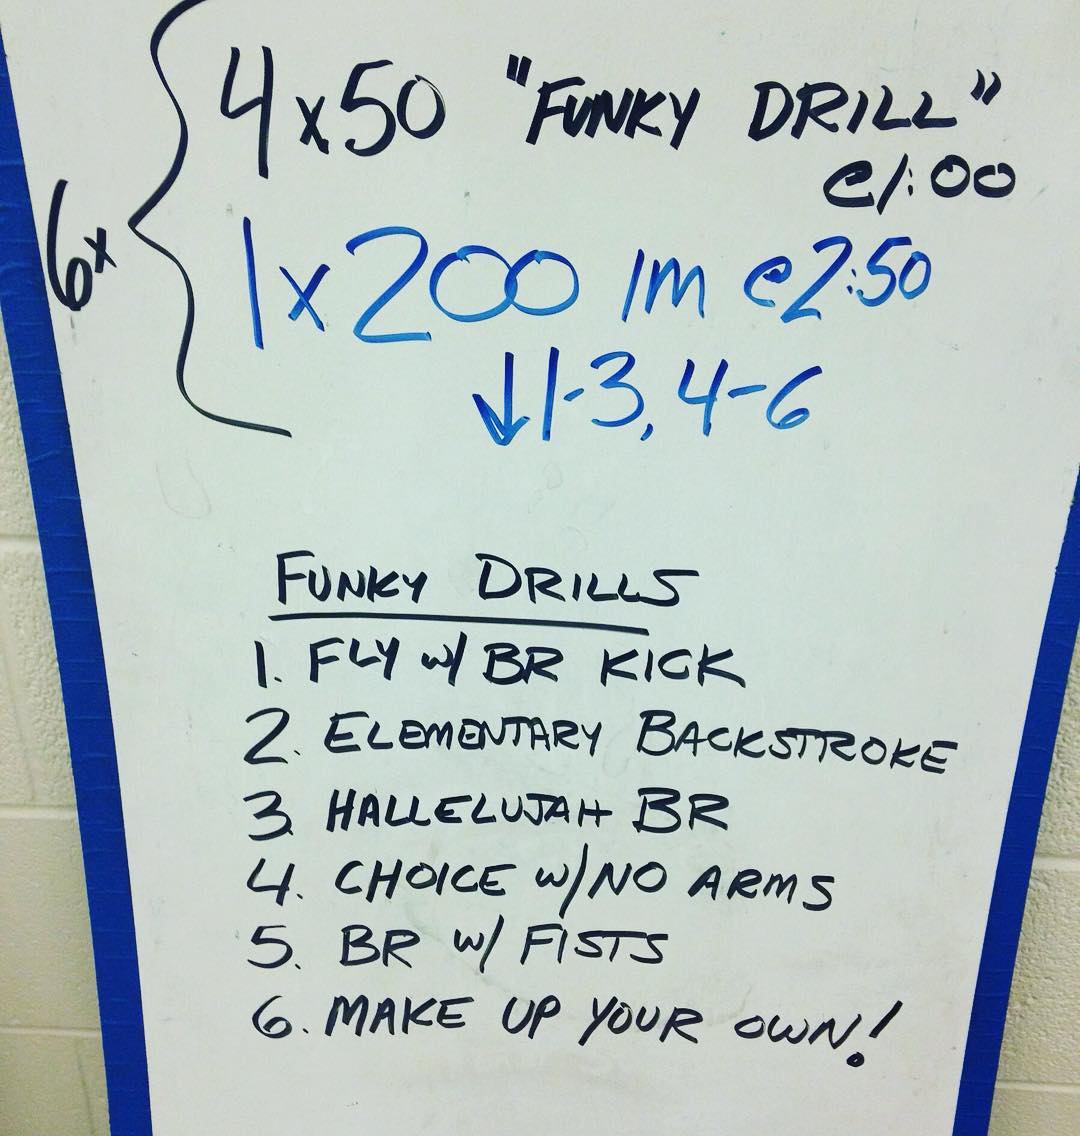 6x
4x50 "FUNKY DRILL"
@1:00
1x200 IM @2:50
↓1-3, 4-6
FUNKY DRILLS
1. FLY w/ BR KICK
2. ELEMENTARY BACKSTROKE
3. HALLELUJAH BR
4. CHOICE w/NO ARMS
5. BR w/ FISTS
6. MAKE UP YOUR OWN!